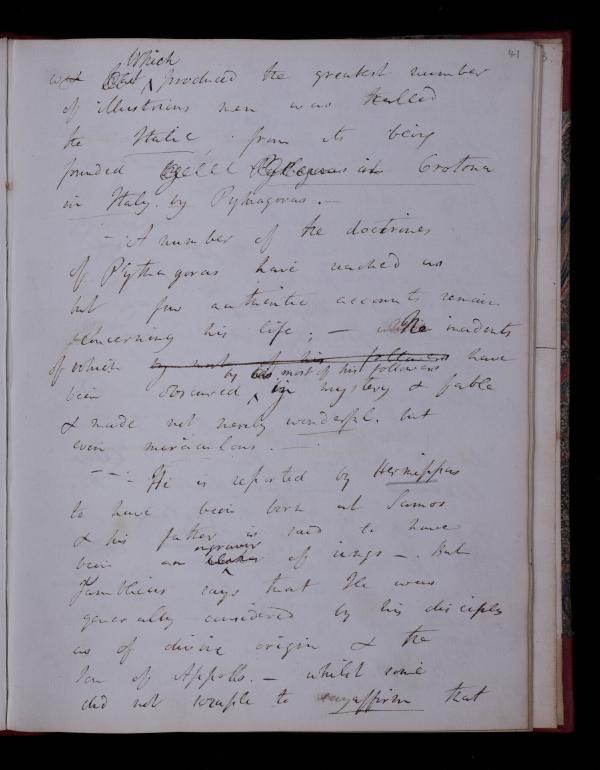 41
Which
produced the greatest number
of illustrious men was called
the Italic, from its being
founded at Crotona
in Italy. by Pythagoras. —
— A number of the doctrines
of Pythagoras have reached us
but few authentic accounts remain
concerning his life; — The incidents
of which by most of his followers have
by most of his followers
been obscured in mystery & fable
& made not merely wonderful. but
even miraculous. —
— — He is reported by Hermippus
to have been born at Samos
& his father is said to have
engraver
been an of rings —. But
Iamblicus says that He was
generally considered by his disciples
as of divine origin & the
son of Appollo. — whilst some
did not scruple to affirm that